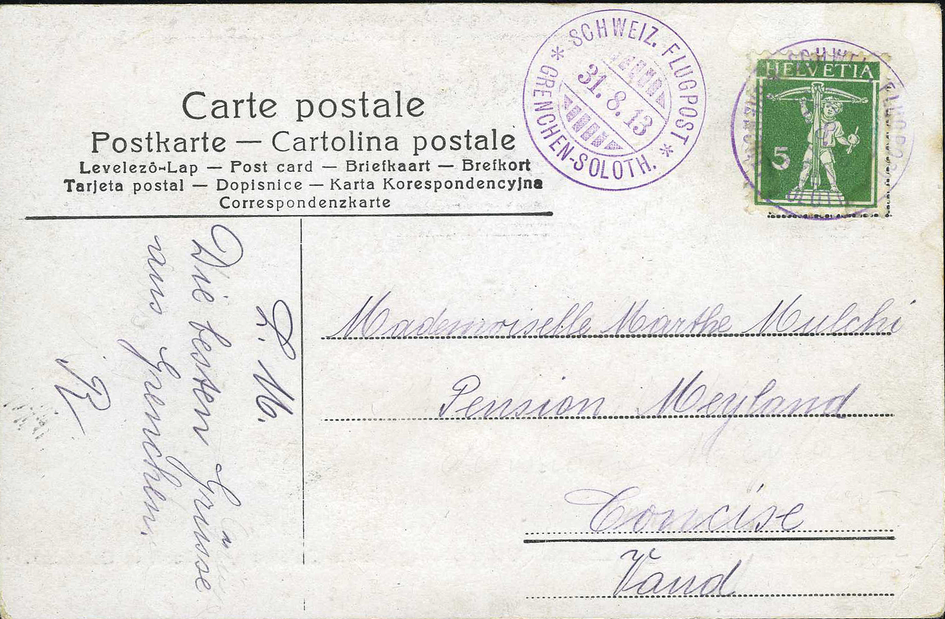 Carte postale
Postkarte — Cartolina postale
Levelező-Lap — Post card — Briefkaart — Brefkort
Tarjeta postal — Dopisnice — Karta Korespondencyjna
Correspondenzkarte
* SCHWEIZ. FLUGPOST *
31.8.13
GRENCHEN-SOLOTH.
HELVETIA
5
L. M.
Die besten Grüsse
aus Grenchen.
R
Mademoiselle Marthe Mulchi
Pension Meyland
Concise
Vaud